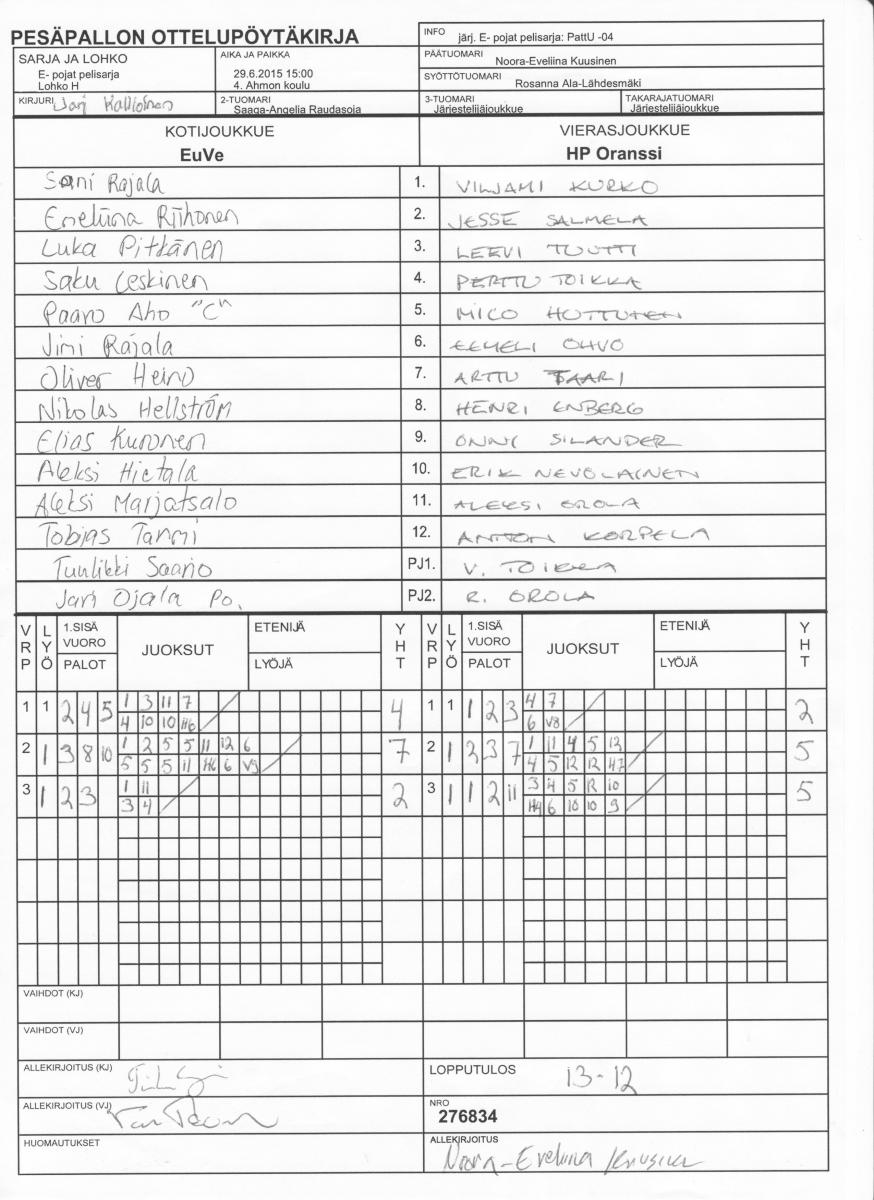 PESÄPALLON OTTELUPÖYTÄKIRJA
INFO järj. E- pojat pelisarja: PattU -04
SARJA JA LOHKO
E- pojat pelisarja
Lohko H
AIKA JA PAIKKA
29.6.2015 15:00
4. Ahmon koulu
PÄÄTUOMARI
Noora-Eveliina Kuusinen
SYÖTTÖTUOMARI
Rosanna Ala-Lähdesmäki
KIRJURI Jari
2-TUOMARI
Saaga-Angelia Raudasoja
3-TUOMARI
Järjestelijäjoukkue
TAKARAJATUOMARI
Järjestelijäjoukkue
KOTIJOUKKUE
EuVe
VIERASJOUKKUE
HP Oranssi
Sani Rajala 1. VILJAMI KURKO
Emeliina Riihonen 2. JESSE SALMELA
Luka Pitkänen 3. LEEVI TUUTTI
Saku Leskinen 4. PERTTU TOIKKA
Paavo Aho "C" 5. MICO HOTTUNEN
Jimi Rajala 6. EEMELI OHVO
Oliver Heino 7. ARTTU SAARI
Nikolas Hellström 8. HENRI ENBERG
Elias Kuronen 9. ONNI SILANDER
Aleksi Hietala 10. ERIK NEVOLAINEN
Aleksi Marjatsalo 11. ALEKSI OROLA
Tobias Tammi 12. ANTTON KORPELA
Tuulikki Saario PJ1. V. TOIKKA
Jari Ojala Po. PJ2. R. OROLA
VRP LYÖ 1.SISÄ VUORO PALOT JUOKSUT ETENIJÄ LYÖJÄ YHT VRP LYÖ 1.SISÄ VUORO PALOT JUOKSUT ETENIJÄ LYÖJÄ YHT
1 1 2 4 5 1 3 11 7 4 1 1 1 2 3 4 7 2
4 10 10 H6 6 V8
2 1 3 8 10 1 2 5 5 11 12 6 7 2 1 2 3 7 1 11 4 5 12 5
5 5 5 11 H6 6 V9 4 5 12 12 H7
3 1 2 3 1 11 2 3 1 1 2 11 3 4 5 12 10 5
3 4 H4 6 10 10 9
VAIHDOT (KJ)
VAIHDOT (VJ)
ALLEKIRJOITUS (KJ)
LOPPUTULOS 13-12
ALLEKIRJOITUS (VJ)
NRO
276834
HUOMAUTUKSET
ALLEKIRJOITUS
Noora-Eveliina Kuusinen